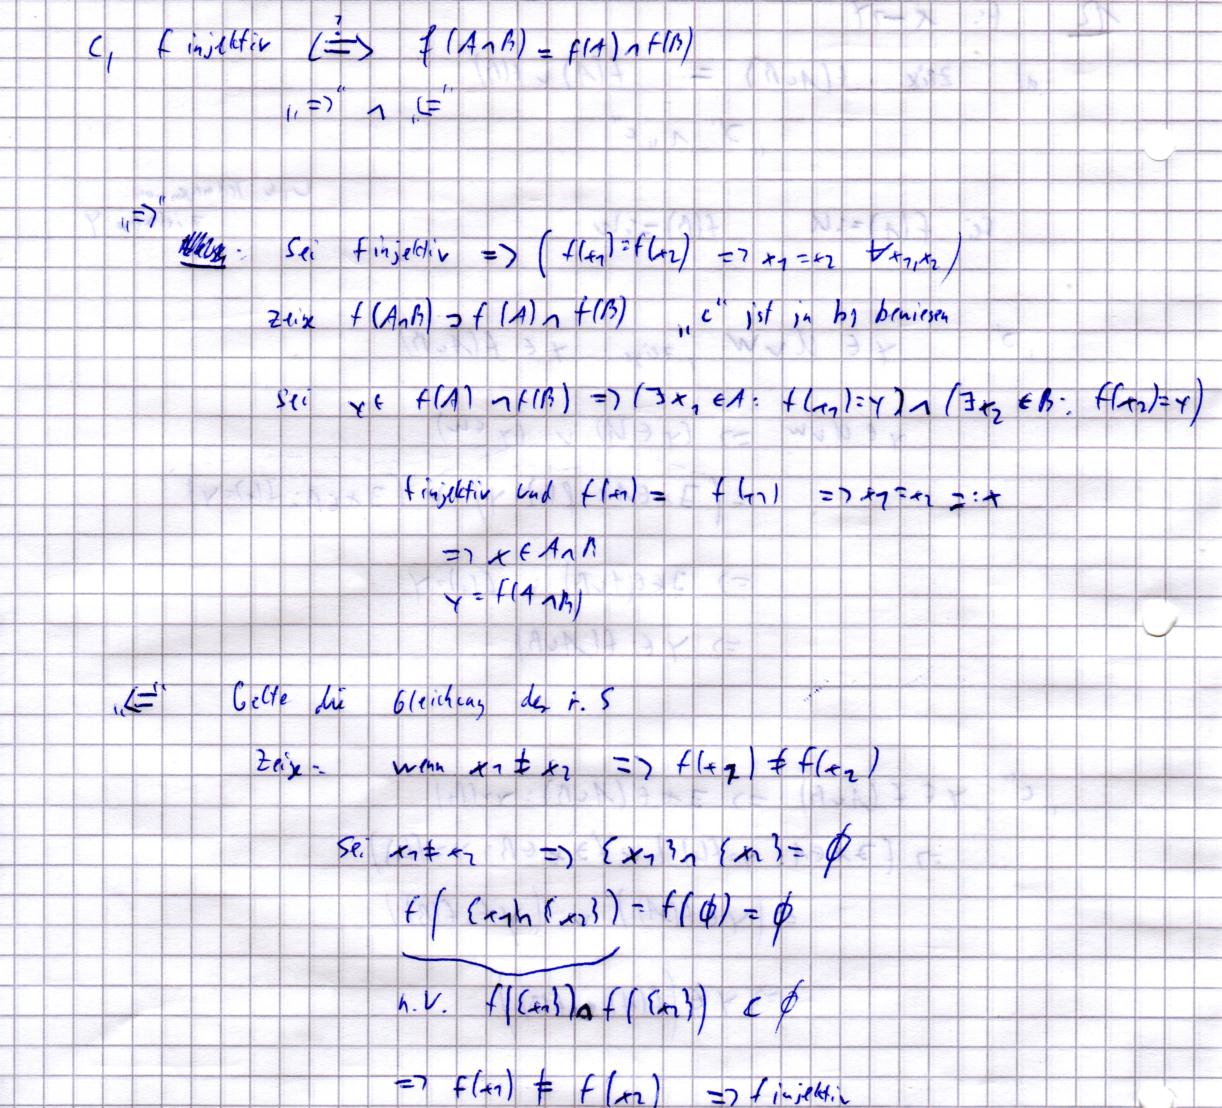 c, f injektiv <=>? f(A∩B) = f(A)∩f(B)
"=>" ∧ "<="
"=>"
Sei f injektiv => (f(x₁)=f(x₂) => x₁=x₂ ∀x₁,x₂)
zeige f(A∩B) ⊃ f(A)∩f(B) "⊂" ist in b) bewiesen
Sei y∈ f(A)∩f(B) => (∃x₁∈A: f(x₁)=y)∧(∃x₂∈B: f(x₂)=y)
f injektiv und f(x₁) = f(x₂) => x₁=x₂ =:x
=> x∈A∩B
y = f(A∩B)
"<=" Gelte die Gleichung der r. S
Zeige: wenn x₁≠x₂ => f(x₁)≠f(x₂)
Sei x₁≠x₂ => {x₁}∩{x₂}=∅
f({x₁}∩{x₂})=f(∅)=∅
n.V. f({x₁})∩f({x₂}) ⊂ ∅
=> f(x₁) ≠ f(x₂) => f injektiv